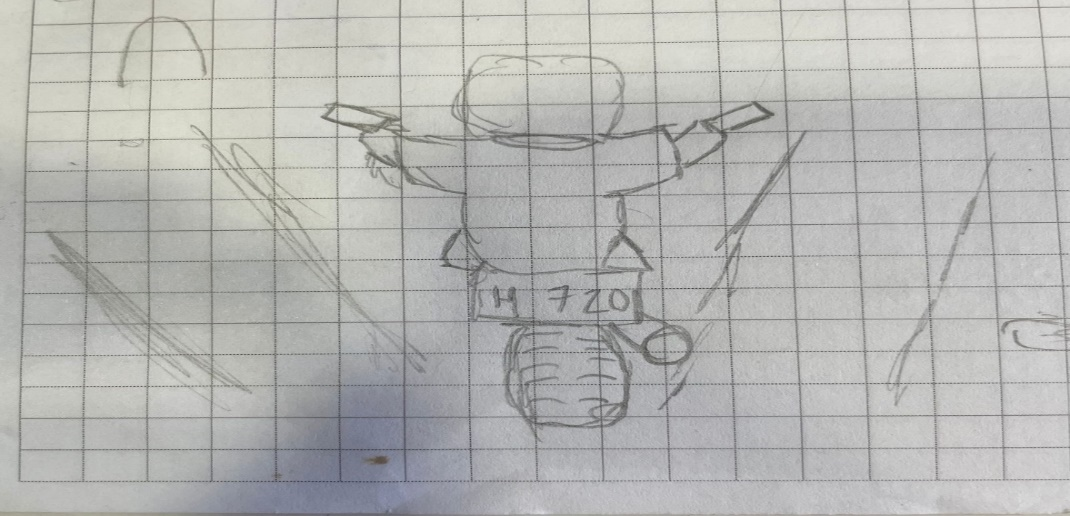 H 720